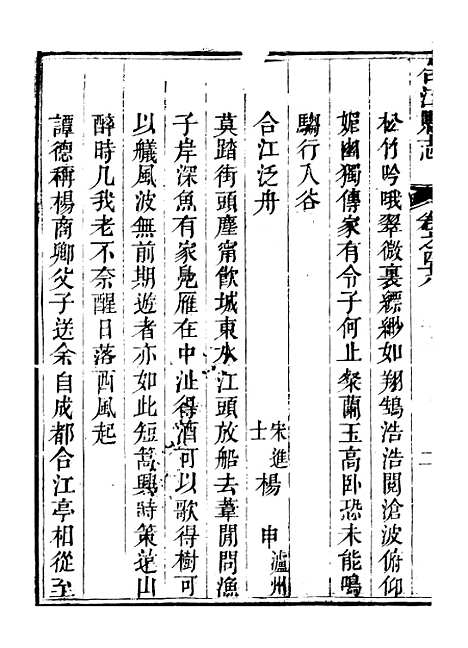 合江縣志
卷之四十八
二
松竹吟哦翠微裏縹緲如翔鵠浩浩閱滄波俯仰
媚幽獨傳家有令子何止粲蘭玉高臥恐未能鳴
騶行入谷
合江泛舟 宋進士 楊申 瀘州
莫踏街頭塵甯飲城東水江頭放船去葦間問漁
子岸深魚有家鳬雁在中沚得酒可以歌得樹可
以艤風波無前期遊者亦如此短篙興詩策遠山
醉時几我老不奈醒日落西風起
譚德稱楊商卿父子送余自成都合江亭相從至